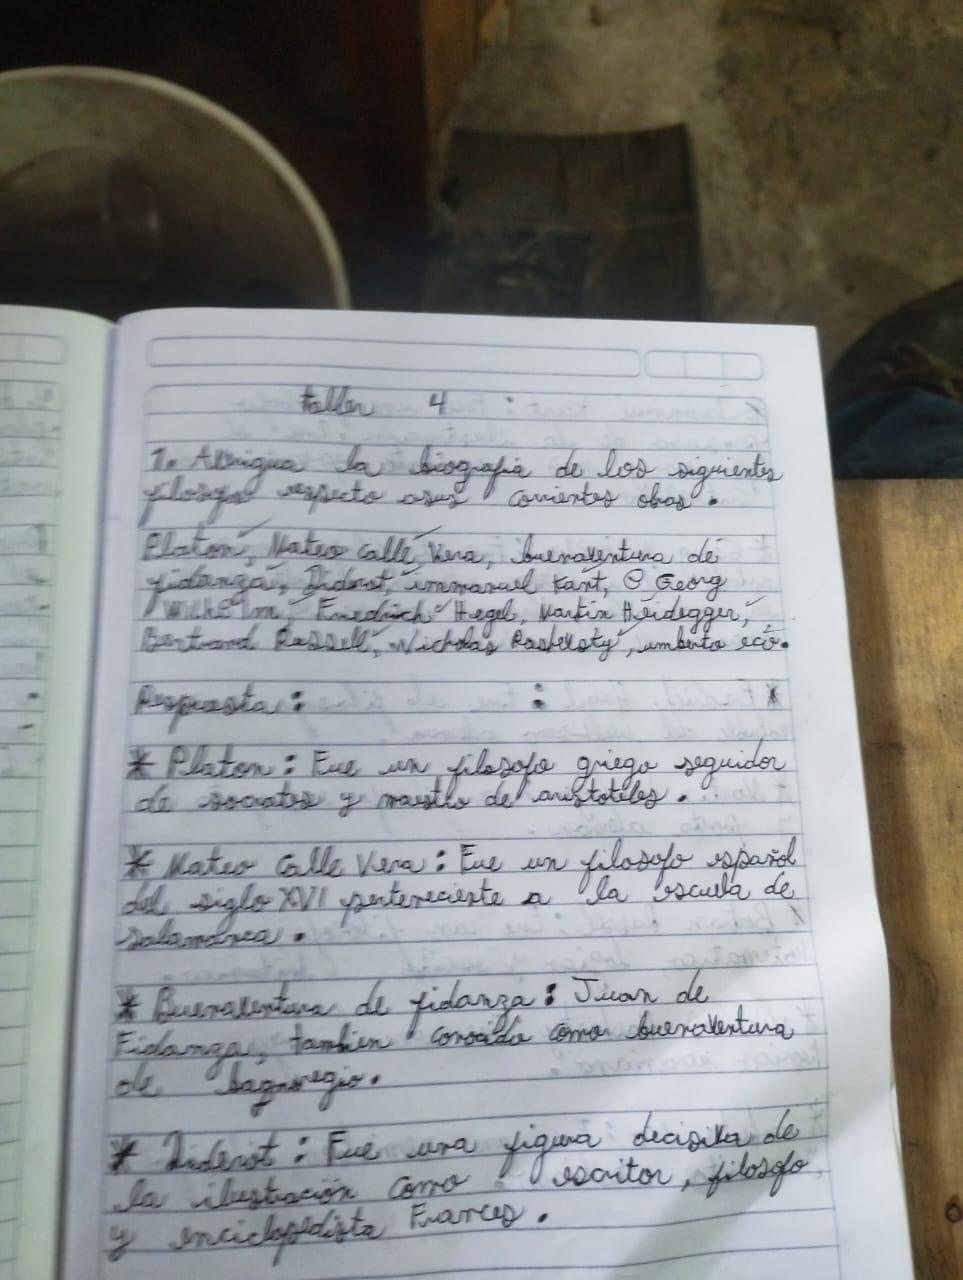 taller 4 :
1. Averigua la biografia de los siguientes
filosofos respecto asus corrientes obras.
Platon, Mateo calle Vera, buenaventura de
fidanza, Diderot, immanuel Kant, Georg
Wilhelm, Friedrich Hegel, Martin Heidegger,
Bertrand Russell, Nicholas umberto eco.
Respuesta : :
* Platon : Fue un filosofo griego seguidor
de socrates y maestro de aristoteles.
* Mateo Calle Vera : Fue un filosofo español
del siglo XVI perteneciente a la escuela de
salamanca.
* Buenaventura de fidanza : Juan de
Fidanza, tambien conocido como buenaventura
de bagnoregio.
* Diderot : Fue una figura decisiva de
la ilustración como escritor, filosofo
y enciclopedista Frances.